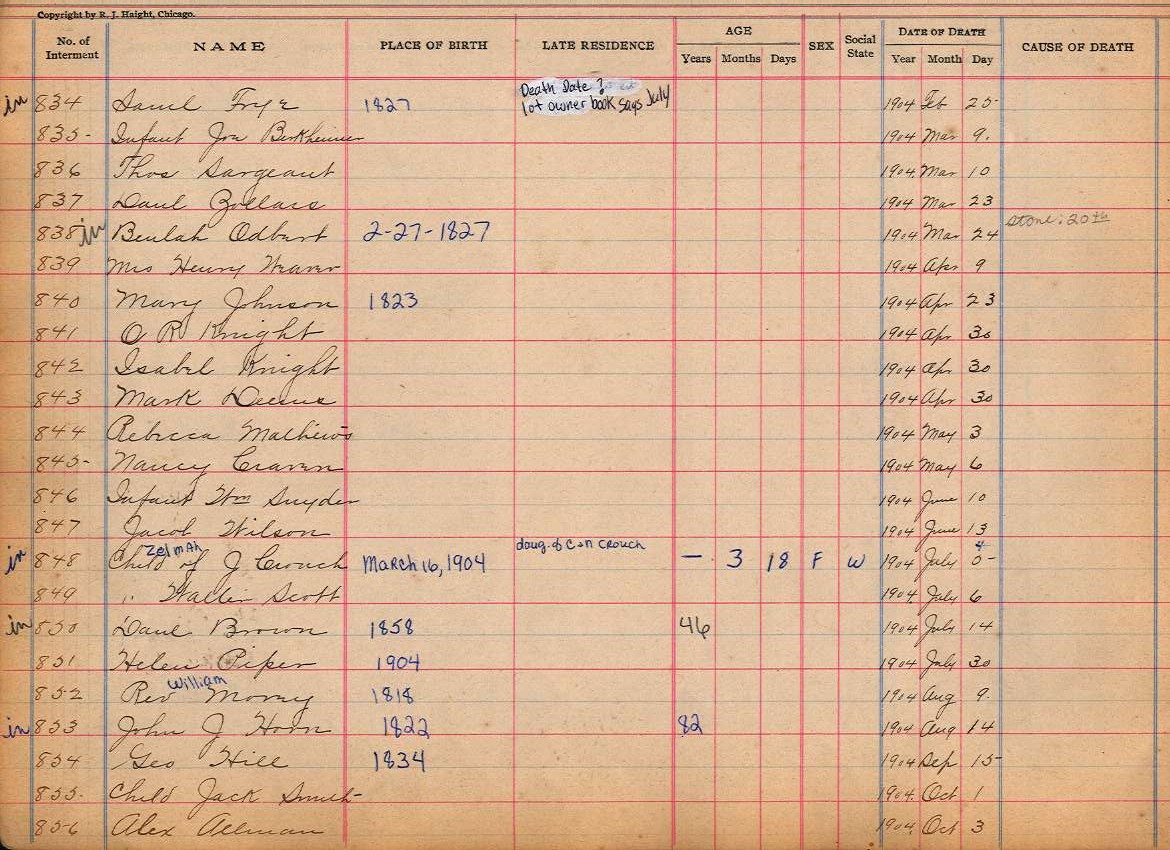 Copyright by R. J. Haight, Chicago.
No. of Interment NAME PLACE OF BIRTH LATE RESIDENCE AGE Years Months Days SEX Social State DATE OF DEATH Year Month Day CAUSE OF DEATH
Death Date ?
in 834 Saml Frye 1827 lot owner book says July 1904 Feb 25
835 Infant Jon Berkheimer 1904 Mar 9.
836 Thos Sargeant 1904 Mar 10
837 Danl Zollars 1904 Mar 23
838 in Beulah Odbert 2-27-1827 1904 Mar 24 Stone: 20th
839 Mrs Henry Weaver 1904 Apr 9
840 Mary Johnson 1823 1904 Apr 23
841 O R Knight 1904 Apr 30
842 Isabel Knight 1904 Apr 30
843 Mark Deems 1904 Apr 30
844 Rebecca Mathews 1904 May 3
845 Nancy Craven 1904 May 6
846 Infant Wm Snyder 1904 June 10
847 Jacob Wilson 1904 June 13
Zelmah doug. of C & N Crouch 4
in 848 Child of J Crouch March 16, 1904 — 3 18 F W 1904 July 5
849 " Walter Scott 1904 July 6
in 850 Danl Brown 1858 46 1904 July 14
851 Helen Piper 1904 1904 July 30
William
852 Rev Morrey 1818 1904 Aug 9.
in 853 John J Horn 1822 82 1904 Aug 14
854 Geo Hill 1834 1904 Sep 15
855 Child Jack Smith 1904 Oct 1
856 Alex Allman 1904 Oct 3